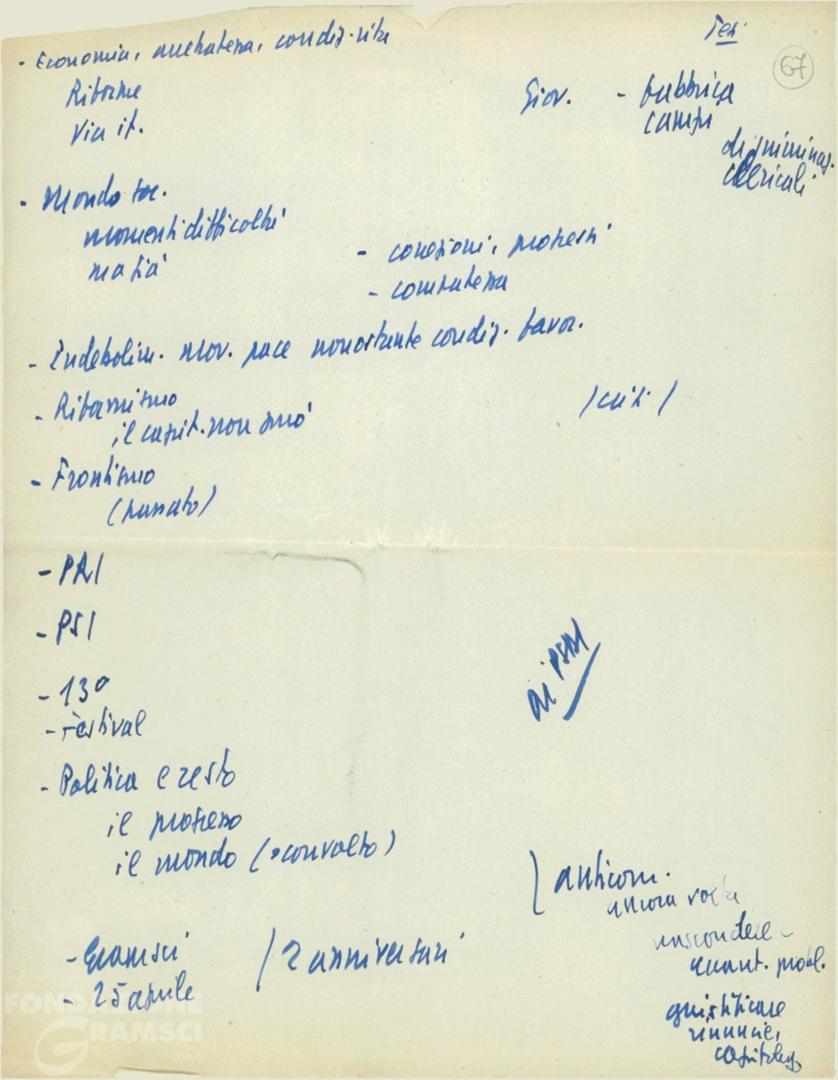 Ter.
67
- Economia, arretratezza, condiz. vita
Riforme
Via it.
Giov. - fabbrica
campi
discriminaz.
clericali
- Mondo soc.
momenti difficoltà
ma già
- correzioni, progressi
- compatezza
- Indebolim. mov. pace nonostante condiz. favor.
- Riformismo
il capit. non può
/ crisi /
- Frontismo
(passato)
- PRI
- PSI
- 13°
- Festival
ai PSDI
- Politica e resto
il progresso
il mondo (sconvolto)
) anticom.
ancora volta
nascondere
quant. probl.
giustificare
rinuncie,
- Gramsci
- 25 aprile
/ 2 anniversari
FONDAZIONE
GRAMSCI
onlus